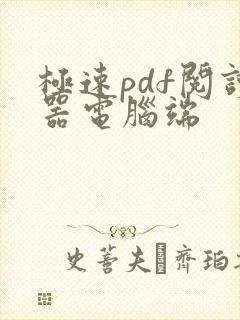 極速pdf閱讀
器電腦端
史蒂夫·齊珀